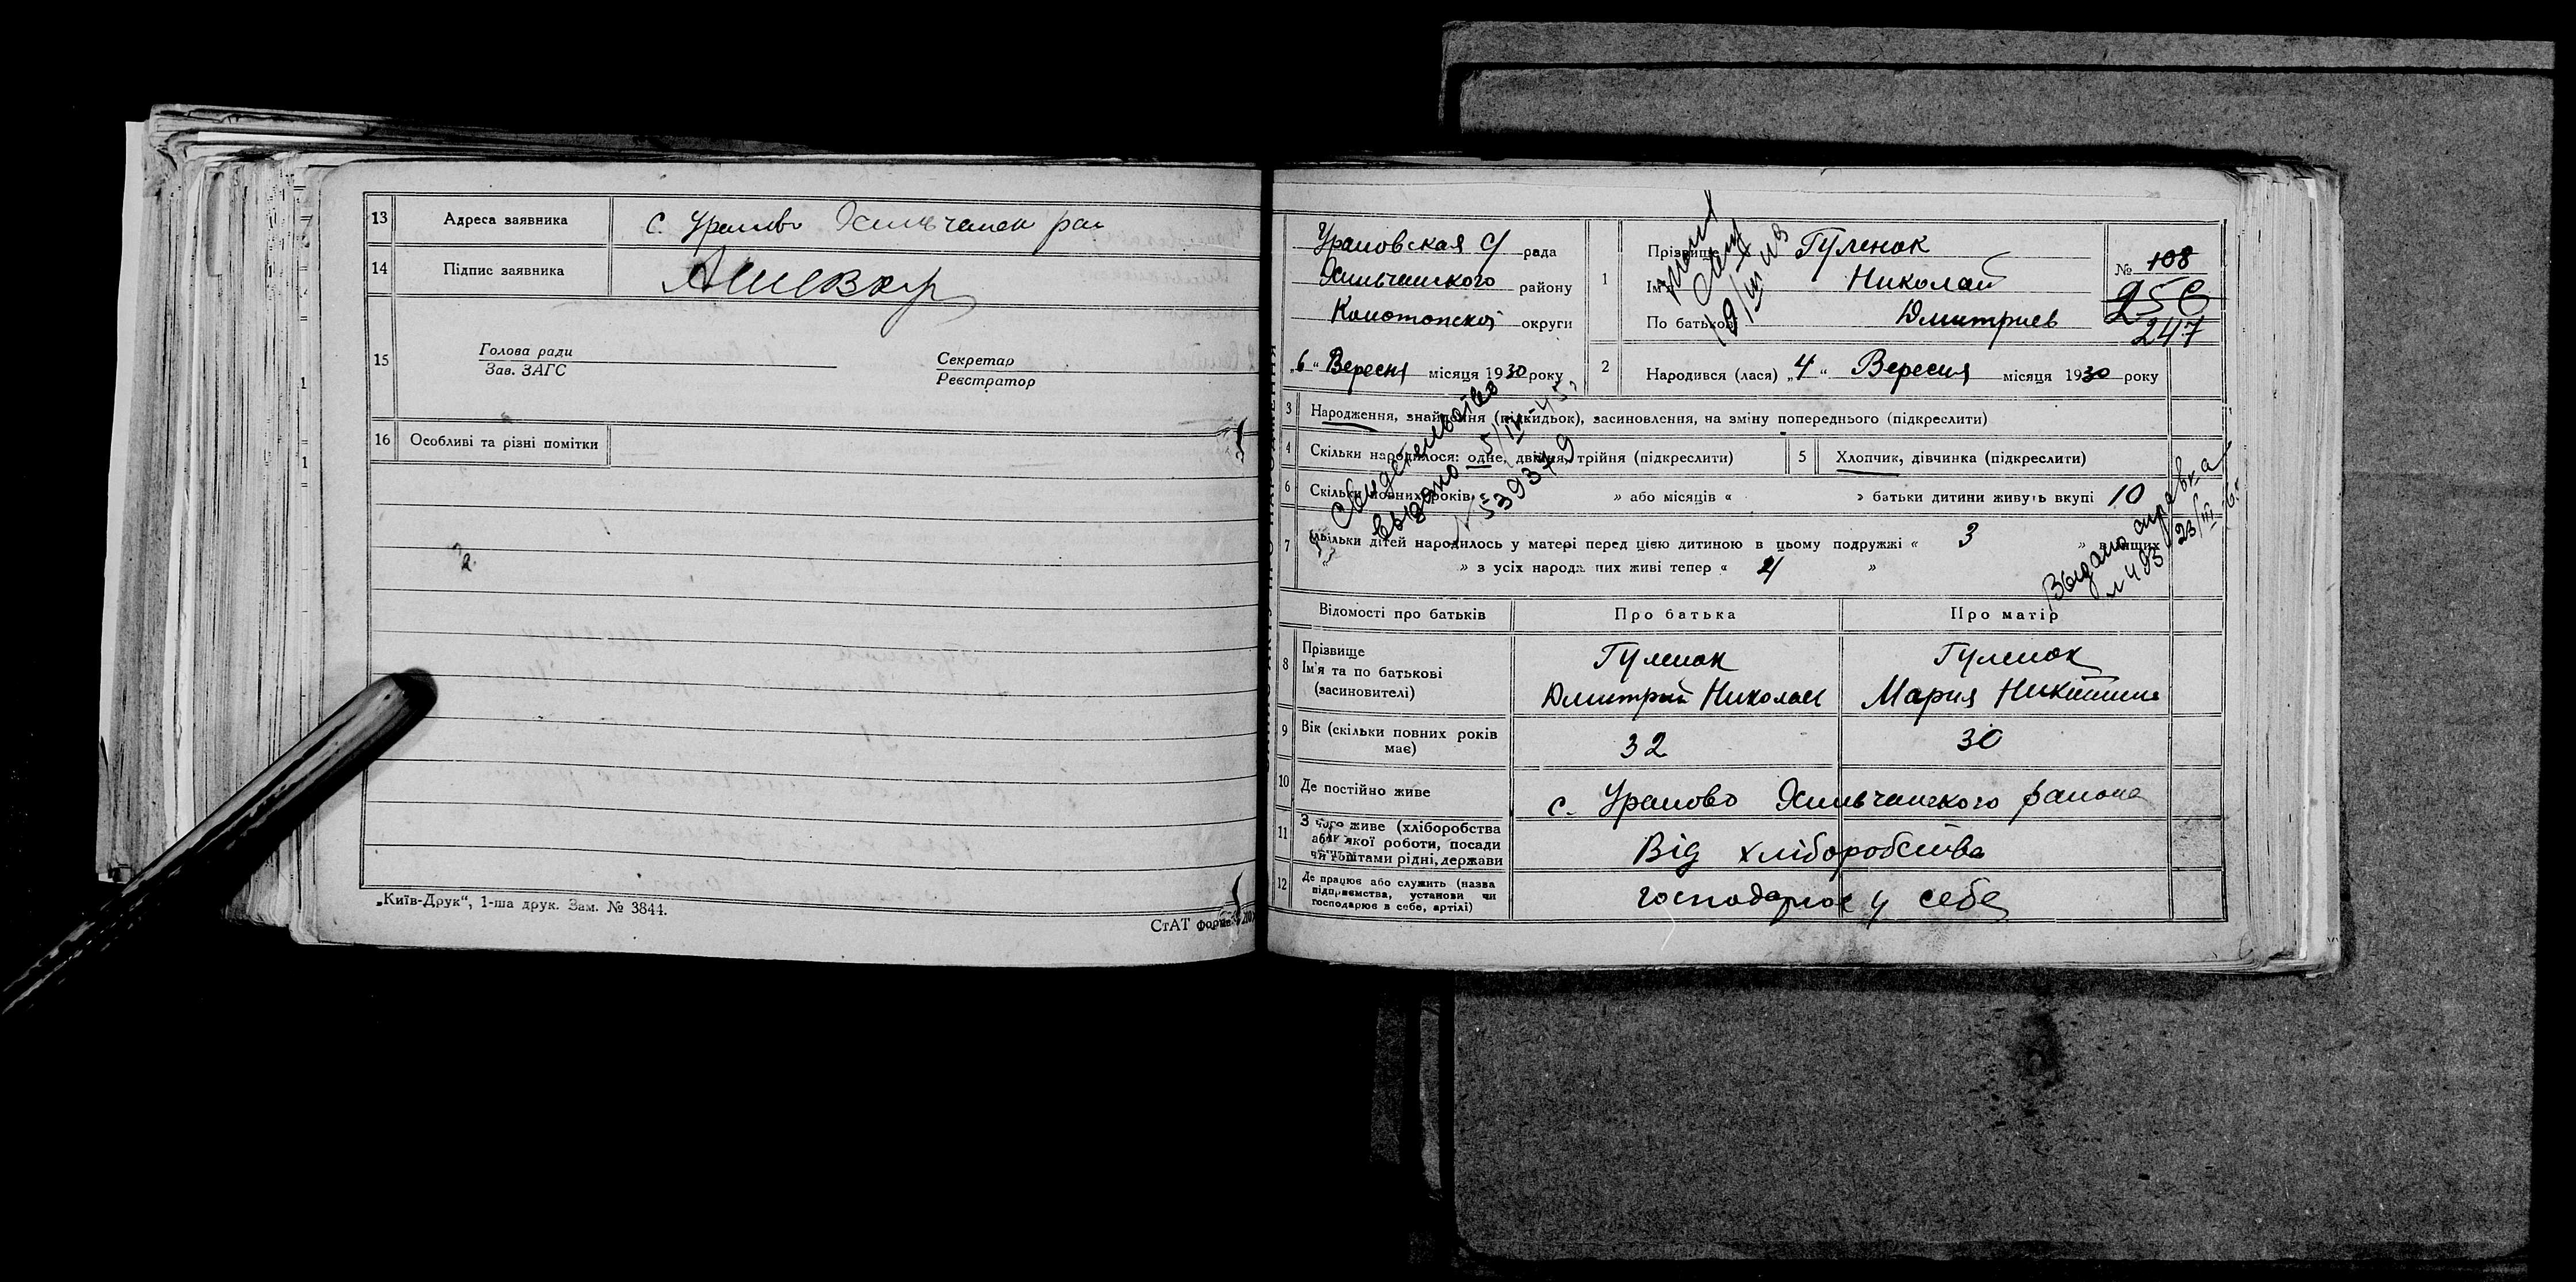 13 Адреса заявника с. Уралово Хильчанск рай
14 Підпис заявника АШевкур
15 Голова ради Секретар
Зав. ЗАГС Реєстратор
16 Особливі та різні помітки
„Київ-Друк“, 1-ша друк. Зам. № 3844.
СтАТ форма
Ураловская с/ рада
Хильчанского району
Конотопской округи
„6“ Вересня місяця 1930 року
1 Прізвище Гуленок
Ім'я Николай
По батькові Дмитриев
№ 108
256
247
19/III
2 Народився (лася) „4“ Вересня місяця 1930 року
3 Народження, знайдення (підкидьок), засиновлення, на зміну попереднього (підкреслити)
4 Скільки народилося: одне, двійня, трійня (підкреслити) 5 Хлопчик, дівчинка (підкреслити)
6 Скільки повних років » або місяців « » батьки дитини живуть вкупі 10
7 Скільки дітей народилось у матері перед цією дитиною в цьому подружжі « 3 » в інших
» з усіх народж них живі тепер « 4 »
Свидетельство
выдано 5/IV-45
№ 539379
Выдана справка
№ 495 23/III
Відомості про батьків Про батька Про матір
8 Прізвище Гуленок Гуленок
Ім'я та по батькові Дмитрий Николаи Мария Никитиши
(засиновителі)
9 Вік (скільки повних років має) 32 30
10 Де постійно живе с. Уралово Хильчанского района
11 З чого живе (хліборобства Від хліборобства
або якої роботи, посади
чи коштами рідні, держави
12 Де працює або служить (назва господарює у себе
підприємства, установи чи
господарює в себе, артілі)